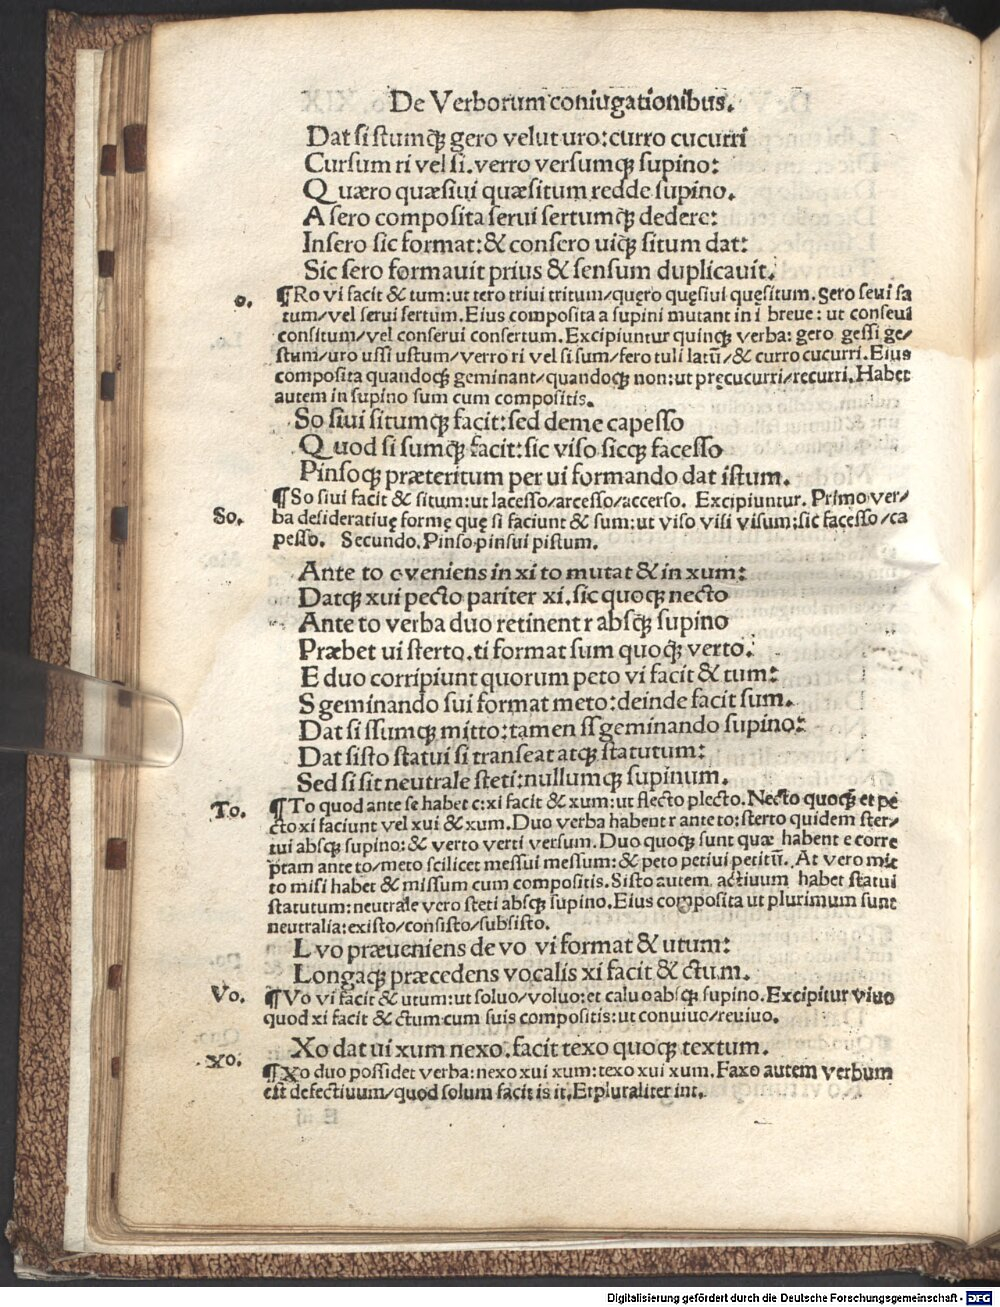 De Verborum coniugationibus.
Dat si stumqꝫ gero velut uro: curro cucurri
Cursum ri vel si. verro versumqꝫ supino:
Quæro quæsiui quæsitum redde supino.
A sero composita serui sertumqꝫ dedere:
Insero sic format: & consero uiqꝫ situm dat:
Sic sero formauit prius & sensum duplicauit.
o. ¶Ro vi facit & tum: ut tero triui tritum/quęro quęsiui quęsitum. Sero seui sa
tum/vel serui sertum. Eius composita a supini mutant in i breue: ut conseui
consitum/vel conserui consertum. Excipiuntur quinqꝫ verba: gero gessi ge/
stum/uro ussi ustum/verro ri vel si sum/fero tuli latū/& curro cucurri. Eius
composita quandoqꝫ geminant/quandoqꝫ non: ut pręcucurri/recurri. Habet
autem in supino sum cum compositis.
So siui situmqꝫ facit: sed deme capesso
Quod si sumqꝫ facit: sic viso sicqꝫ facesso
Pinsoqꝫ præteritum per ui formando dat istum.
So. ¶So siui facit & situm: ut lacesso/arcesso/accerso. Excipiuntur. Primo ver/
ba desideratiuę formę quę si faciunt & sum: ut viso visi visum: sic facesso/ca
pesso. Secundo. Pinso pinsui pistum.
Ante to c veniens in xi to mutat & in xum:
Datqꝫ xui pecto pariter xi. sic quoqꝫ necto
Ante to verba duo retinent r absqꝫ supino
Præbet ui sterto. ti format sum quoqꝫ verto.
E duo corripiunt quorum peto vi facit & tum:
S geminando sui format meto: deinde facit sum.
Dat si ssumqꝫ mitto: tamen ss geminando supino:
Dat sisto statui si transeat atqꝫ statutum:
Sed si sit neutrale steti: nullumqꝫ supinum.
To. ¶To quod ante se habet c: xi facit & xum: ut flecto plecto. Necto quoqꝫ et pe
cto xi faciunt vel xui & xum. Duo verba habent r ante to: sterto quidem ster/
tui absqꝫ supino: & verto verti versum. Duo quoqꝫ sunt quæ habent e corre
ptam ante to/meto scilicet messui messum: & peto petiui petitū. At vero mit
to misi habet & missum cum compositis. Sisto autem actiuum habet statui
statutum: neutrale vero steti absqꝫ supino. Eius composita ut plurimum sunt
neutralia: existo/consisto/subsisto.
L vo præueniens de vo vi format & utum:
Longaqꝫ præcedens vocalis xi facit & ctum.
Vo. ¶Vo vi facit & utum: ut soluo/voluo: et caluo absqꝫ supino. Excipitur viuo
quod xi facit & ctum cum suis compositis: ut conuiuo/reuiuo.
Xo dat ui xum nexo. facit texo quoqꝫ textum.
Xo. ¶Xo duo possidet verba: nexo xui xum: texo xui xum. Faxo autem verbum
est defectiuum/quod solum facit is it. Et pluraliter int.
Digitalisierung gefördert durch die Deutsche Forschungsgemeinschaft - DFG